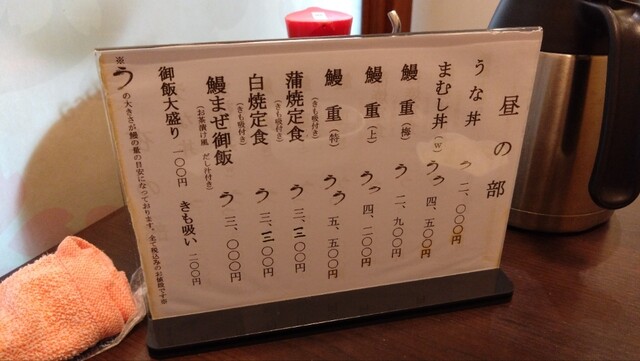 昼の部
うな丼 う 二、〇〇〇円
まむし丼(W) うう 四、五〇〇円
鰻重(梅) う 二、九〇〇円
鰻重(上) うっ 四、二〇〇円
鰻重(特) うう 五、五〇〇円
(きも吸付き)
蒲焼定食 う 三、三〇〇円
(きも吸付き)
白焼定食 う 三、三〇〇円
(きも吸付き)
鰻まぜ御飯 う 三、〇〇〇円
(お茶漬け風 だし汁付き)
御飯大盛り 一〇〇円 きも吸い 二〇〇円
※うの大きさが鰻の量の目安になっております。全て税込みのお値段です※